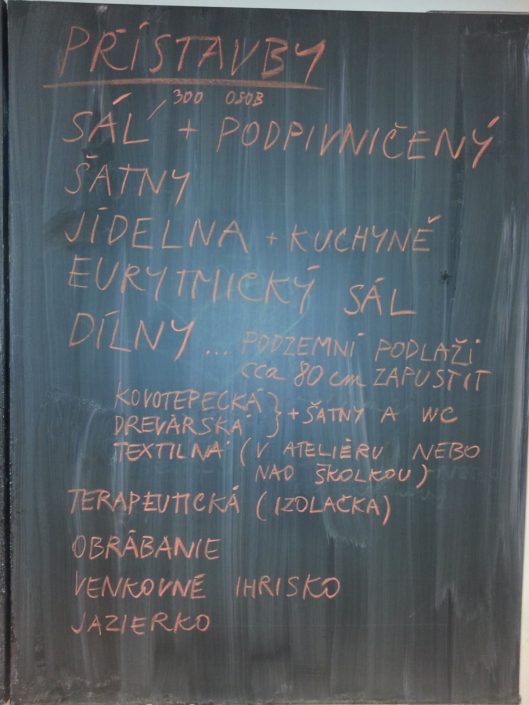 PŘÍSTAVBY
300 OSOB
SÁL + PODPIVNIČENÝ
ŠATNY
JÍDELNA + KUCHYNĚ
EURYTMICKÝ SÁL
DÍLNY ... PODZEMNÍ PODLAŽI
cca 80 cm ZAPUSTIT
KOVOTEPECKÁ
DREVÁRSKÁ } + ŠATNY A WC
TEXTILNÁ (V ATELIÉRU NEBO
NAD ŠKOLKOU)
TERAPEUTICKÁ (IZOLAČKA)
OBRÁBANIE
VENKOVNÉ IHRISKO
JAZIERKO